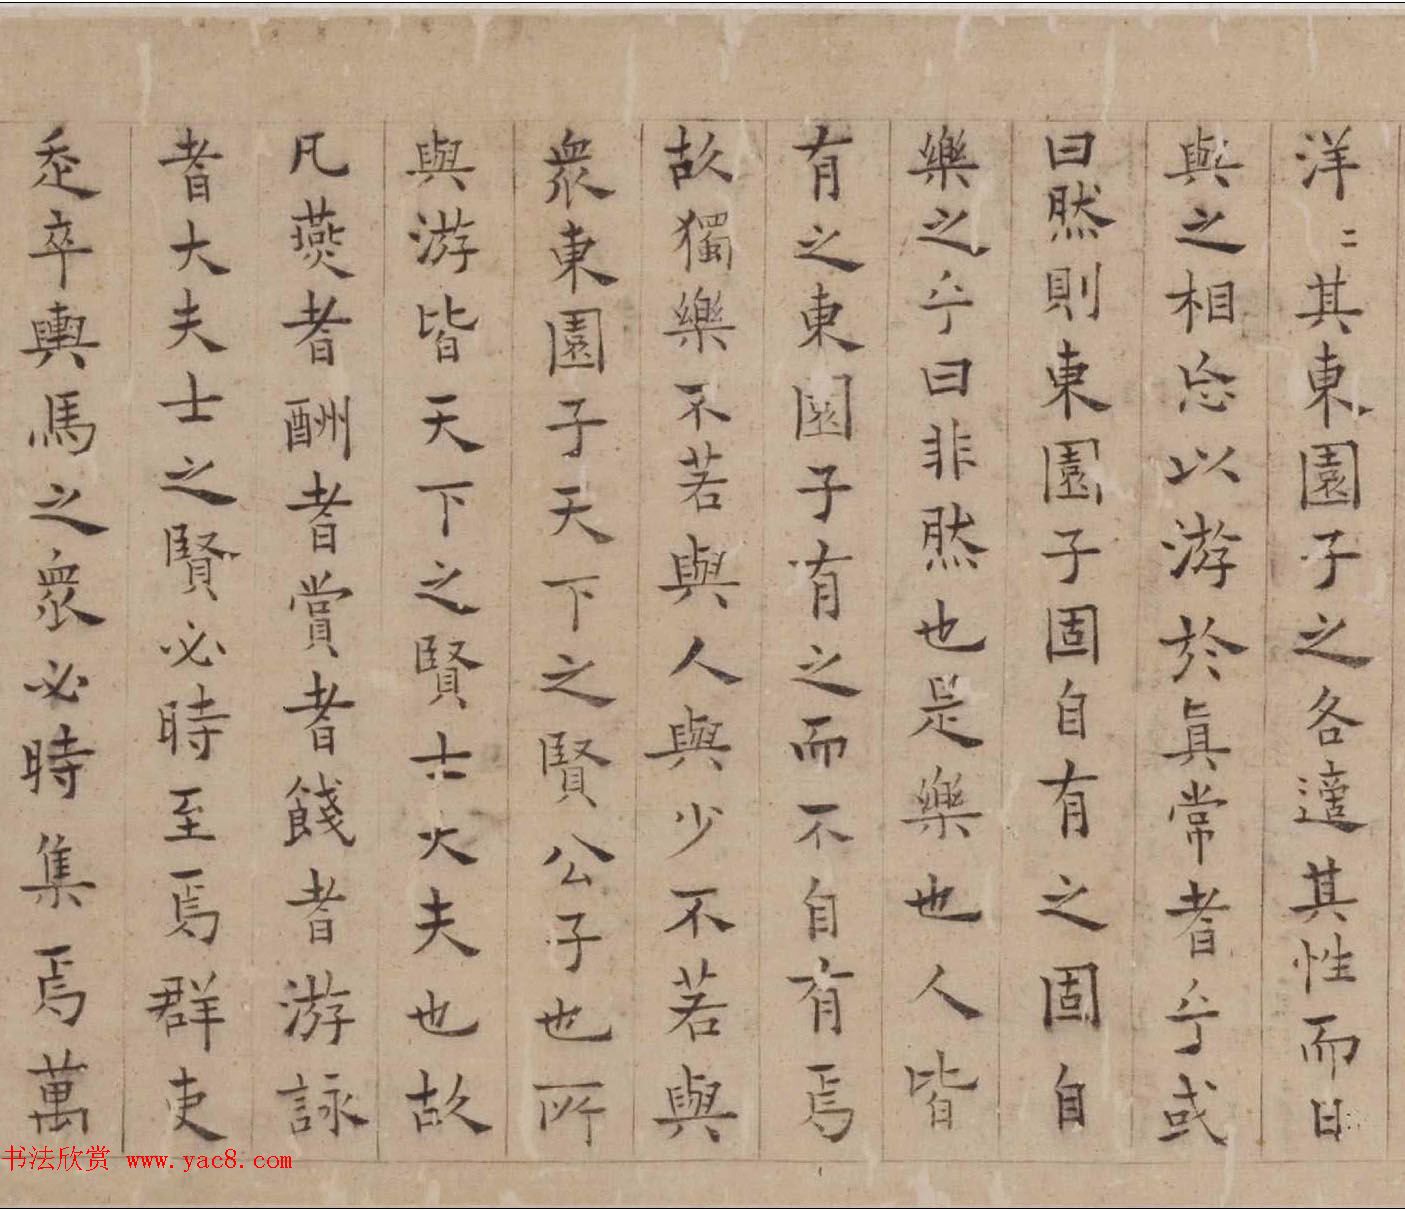 洋〻其東園子之各適其性而日
與之相忘以游於眞常者乎或
曰然則東園子固自有之固自
樂之乎曰非然也是樂也人皆
有之東園子有之而不自有焉
故獨樂不若與人與少不若與
衆東園子天下之賢公子也所
與游皆天下之賢士大夫也故
凡燕者酬者賞者餞者游詠
者大夫士之賢必時至焉群吏
走卒輿馬之衆必時集焉萬
书法欣赏 www.yac8.com